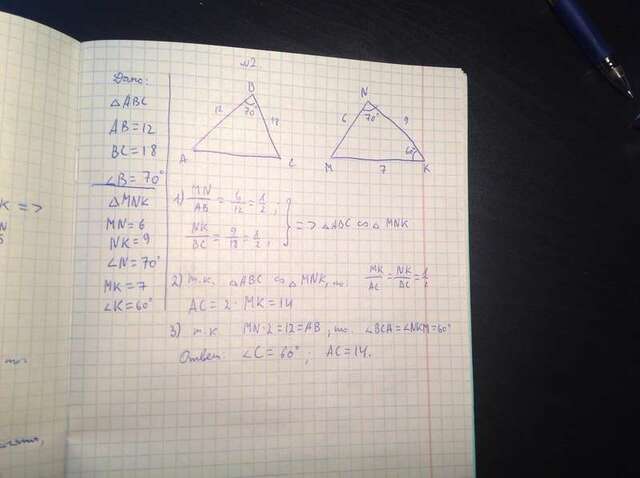 №2.
Дано:
△ABC
AB=12
BC=18
∠B=70°
△MNK
MN=6
NK=9
∠N=70°
MK=7
∠K=60°
B
12
70°
18
A
C
N
6
70°
9
60°
M
7
K
1) MN/AB = 6/12 = 1/2;
NK/BC = 9/18 = 1/2;
=> △ABC ∽ △MNK
2) т.к. △ABC ∽ △MNK, то MK/AC = NK/BC = 1/2
AC = 2 · MK = 14
3) т.к MN·2=12=AB, то ∠BCA=∠NKM=60°
Ответ: ∠C=60°; AC=14.
K =>